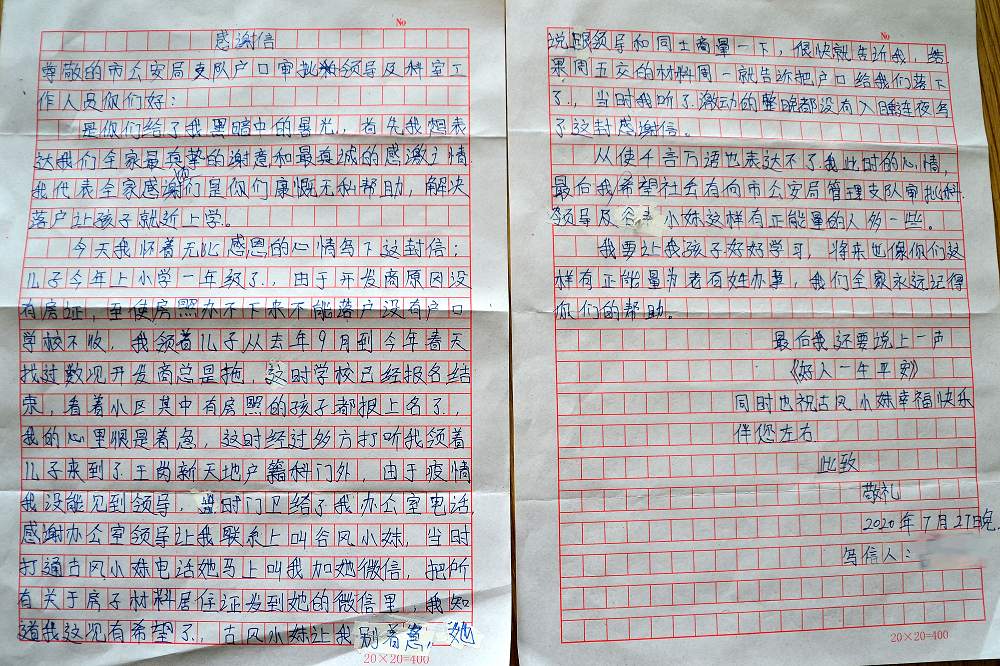 No
感谢信
尊敬的市公安局支队户口审批科领导及科室工
作人员你们好：
是你们给了我黑暗中的曙光，首先我想表
达我们全家最真挚的谢意和最真诚的感激之情
我代表全家感谢你们是你们慷慨无私帮助，解决
落户让孩子就近上学。
今天我怀着无比感恩的心情写下这封信：
儿子今年上小学一年级了，由于开发商原因没
有房证，至使房照办不下来不能落户没有户口
学校不收，我领着儿子从去年9月到今年春天
找过数次开发商总是拖，这时学校已经报名结
束，看着小区其中有房照的孩子都报上名了，
我的心里狠是着急，这时经过多方打听我领着
儿子来到了王岗新天地户籍科门外，由于疫情
我没能见到领导，当时门卫给了我办公室电话，
感谢办公室领导让我联系上叫谷风小妹，当时
打通古风小妹电话她马上叫我加她微信，把所
有关于房子材料居住证发到她的微信里，我知
道我这次有希望了，古风小妹让我别着急，她
20×20=400
No
说跟领导和同士商量一下，很快就告诉我，结
果周五交的材料周一就告诉把户口给我们落下
了，当时我听了激动的整晚都没有入睡连夜写
了这封感谢信。
从使千言万语也表达不了我此时的心情，
最后我希望社会有向市公安局管理支队审批科
领导及谷风小妹这样有正能量的人多一些。
我要让我孩子好好学习，将来也像你们这
样有正能量为老百姓办事，我们全家永远记得
你们的帮助。
最后我还要说上一声
《好人一生平安》
同时也祝古风小妹幸福快乐
伴您左右
此致
敬礼
2020年7月27日晚
写信人：
20×20=400